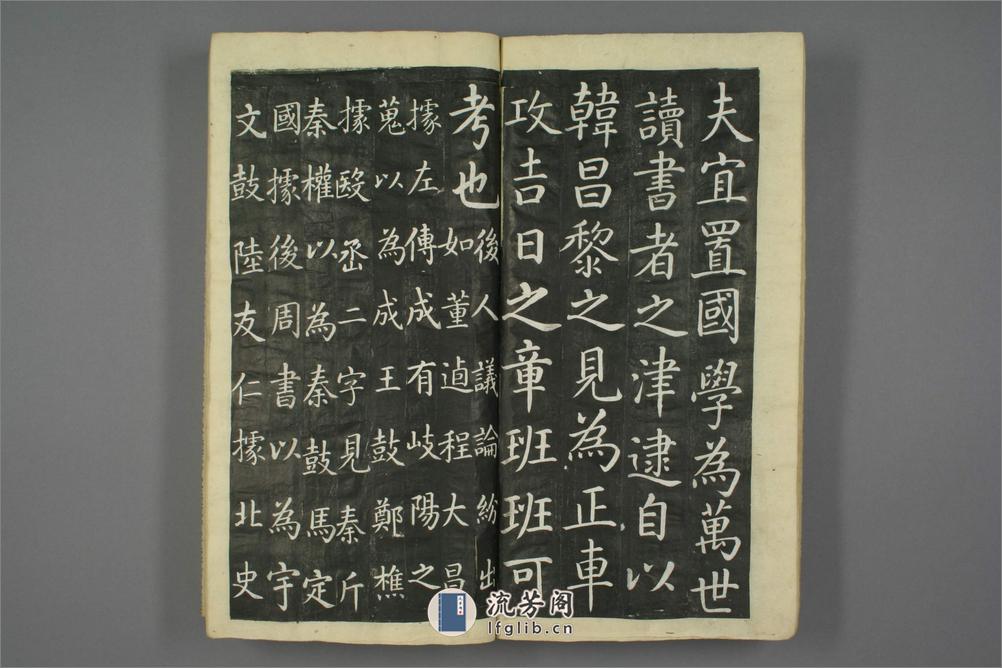 夫宜置國學為萬世
讀書者之津逮自以
韓昌黎之見為正車
攻吉日之章班班可
考也
後人議論紛出
如董逌程大昌
據左傳成有岐陽之
蒐以為成王鼓鄭樵
據殹丞二字見秦斤
秦權以為秦鼓馬定
國據後周書以為宇
文鼓陸友仁據北史
流芳阁
lfglib.cn